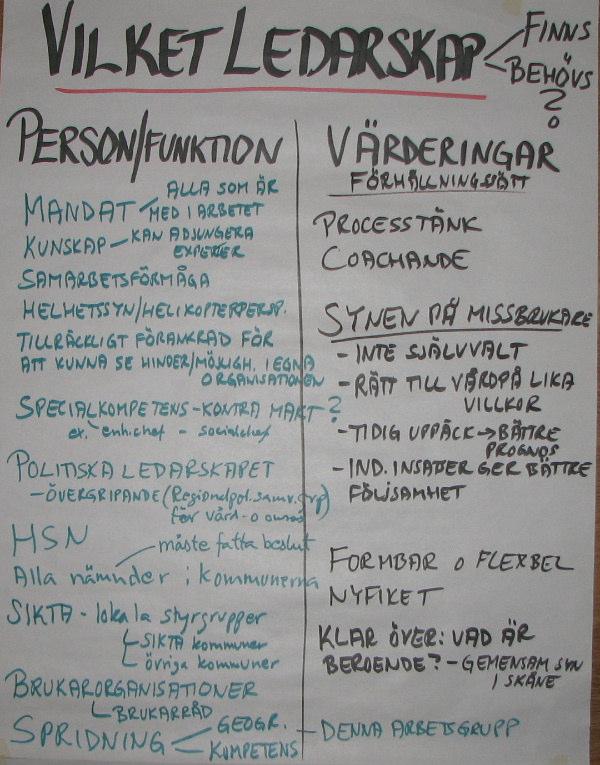 VILKET LEDARSKAP
FINNS
BEHÖVS
?
PERSON/FUNKTION
MANDAT
ALLA SOM ÄR
MED I ARBETET
KUNSKAP - KAN ADJUNGERA
EXPERTER
SAMARBETSFÖRMÅGA
HELHETSSYN/HELIKOPTERPERSP.
TILLRÄCKLIGT FÖRANKRAD FÖR
ATT KUNNA SE HINDER/MÖJLIGH. I EGNA
ORGANISATIONEN
SPECIALKOMPETENS - KONTRA MAKT?
ex. enh.chef - socialchef
POLITISKA LEDARSKAPET
- ÖVERGRIPANDE (Regionalpol. samv. grp)
för vård- o oms
HSN
måste fatta beslut
Alla nämnder i kommunerna
SIKTA - lokala styrgrupper
SIKTA kommuner
övriga kommuner
BRUKARORGANISATIONER
BRUKARRÅD
SPRIDNING
GEOGR.
KOMPETENS
VÄRDERINGAR
FÖRHÅLLNINGSSÄTT
PROCESSTÄNK
COACHANDE
SYNEN PÅ MISSBRUKARE
- INTE SJÄLVVALT
- RÄTT TILL VÅRD PÅ LIKA
VILLKOR
- TIDIG UPPÄCK → BÄTTRE
PROGNOS
- IND. INSATSER GER BÄTTRE
FÖLJSAMHET
FORMBAR O FLEXBEL
NYFIKET
KLAR ÖVER: VAD ÄR
BEROENDE? - GEMENSAM SYN
I SKÅNE
- DENNA ARBETSGRUPP